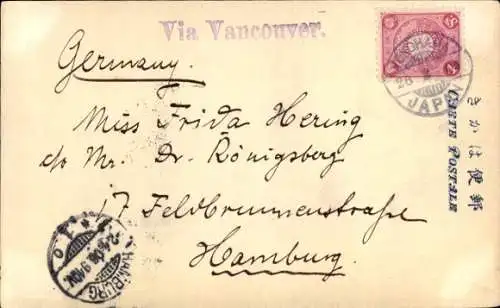 Via Vancouver.
Germany.
Miss Frida Hering
c/o Mr. Dr. Königsberg
17 Feldbrunnenstraße
Hamburg.
JAPAN
郵便はかき
CARTE POSTALE
HAMBURG